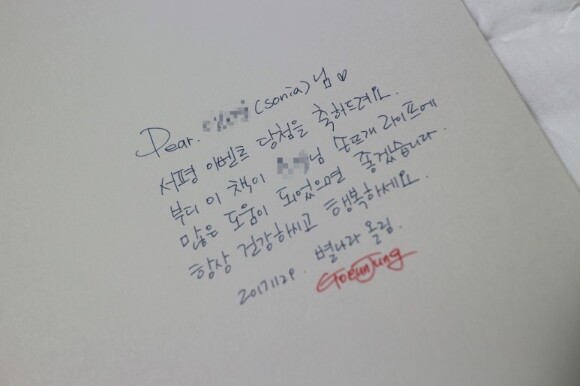 Dear. (sonia)님♡
서평 이벤트 당첨을 축하드려요.
부디 이 책이 님 솜뜨개 라이프에
많은 도움이 되었으면 좋겠습니다.
항상 건강하시고 행복하세요.
20171129. 별나라 올림.
GoEunJung